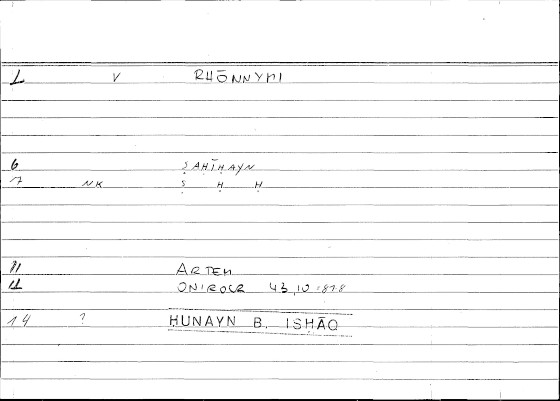 1 v RHŌNNYMI
6 ṢAḤĪḤAYN
7 NK Ṣ Ḥ Ḥ
11 ARTEM
12 ONIROCR 43,10
14 ? ḤUNAYN B. ISḤĀQ